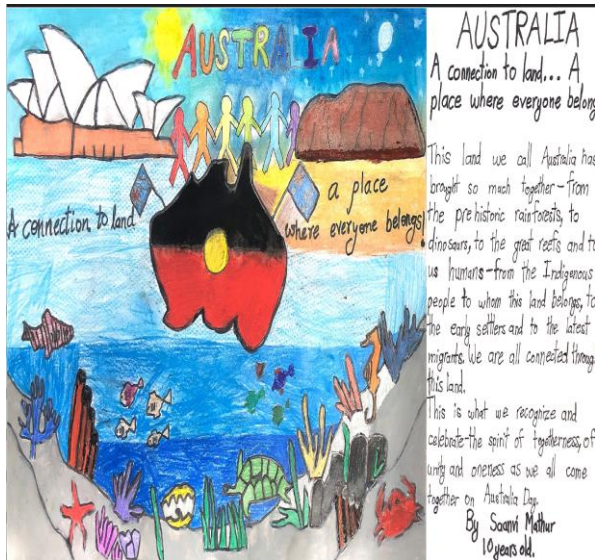 AUSTRALIA
A connection to land
a place
where everyone belongs!
AUSTRALIA
A connection to land... A
place where everyone belong
This land we call Australia has
brought so much together-from
the prehistoric rainforests, to
dinosaurs, to the great reefs and to
us humans-from the Indigenous
people to whom this land belongs, to
the early settlers and to the latest
migrants. We are all connected through
this land.
This is what we recognize and
celebrate-the spirit of togetherness, of
unity and oneness as we all come
together on Australia Day.
By Saanvi Mathur
10 years old.